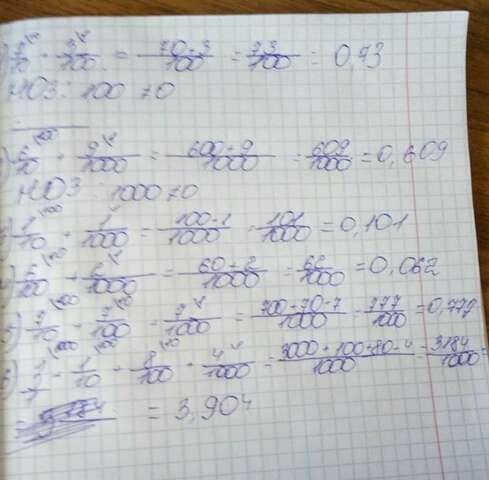 7/10 + 3/100 = 70+3/100 = 73/100 = 0,73
НОЗ: 100 70
6/10 + 9/1000 = 600+9/1000 = 609/1000 = 0,609
НОЗ 1000 70
1/10 + 1/1000 = 100+1/1000 = 101/1000 = 0,101
6/100 + 2/1000 = 60+2/1000 = 62/1000 = 0,062
5) 7/10 + 7/100 + 7/1000 = 700+70+7/1000 = 777/1000 = 0,777
1/10 + 8/100 + 4/1000 = 3000+100+80+4/1000 = 3184/1000 =
= 3,904